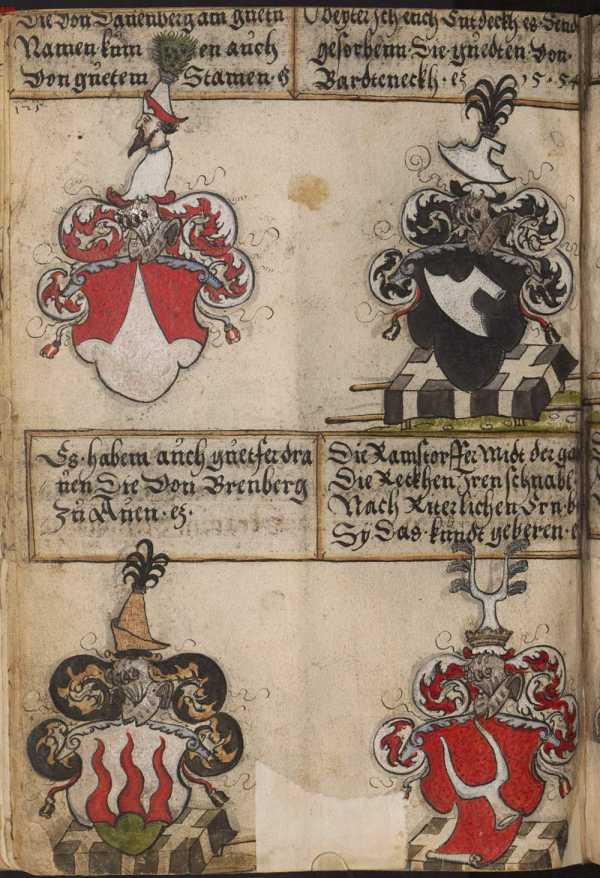 Die Von Dauenberg am guetn
Namen kum en auch
Von guetem Stamen · ez
beyter sch Entdeckh es
gesorbenn · Die guedten Von ·
Bardteneckh · ez 15 · 54
Es · habem auch guetfer dra
nen Die Von Brenberg
zu Anen · ez ·
Die Ramstorffer Midt der ga
Die Reckhen Iren schnabl ·
Nach Riterlichen Ern · b
Sy Das · kundt geberen · e